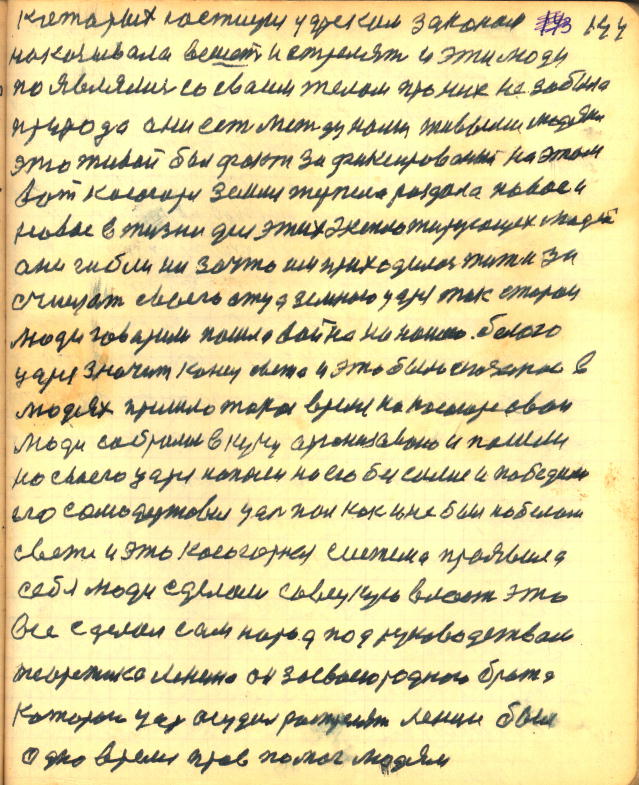 которых постигри царским законом 193 144
наказывала вешат и стрелят и эти люди
появлялис со своим телом про них не забыла
природа они ест между нами живыми людями
это живой был факт зафиксирований на этом
вот косогоре земля терпела раздала новое и
новое в жизни для этих эксплотирующих людей
они гибли ни за что им приходилос жит и за
считат своего отца земного царя так старои
люди говорили пошла война на нашего белого
царя значит конец света и это было сказаное в
людях пришло такое время на косогоре свои
люди собрали в кучу организовано и пошли
на своего царя напали на его бессилие и победили
его самодержавия царь пал как и не был на белом
свете и это косогорная система проявила
себя люди сделали совецкую власт это
все сделал сам народ под руководством
теоретика Ленина он за своего родного брата
которого цар осудил ростpелят Ленин был
одно время прав помог людям